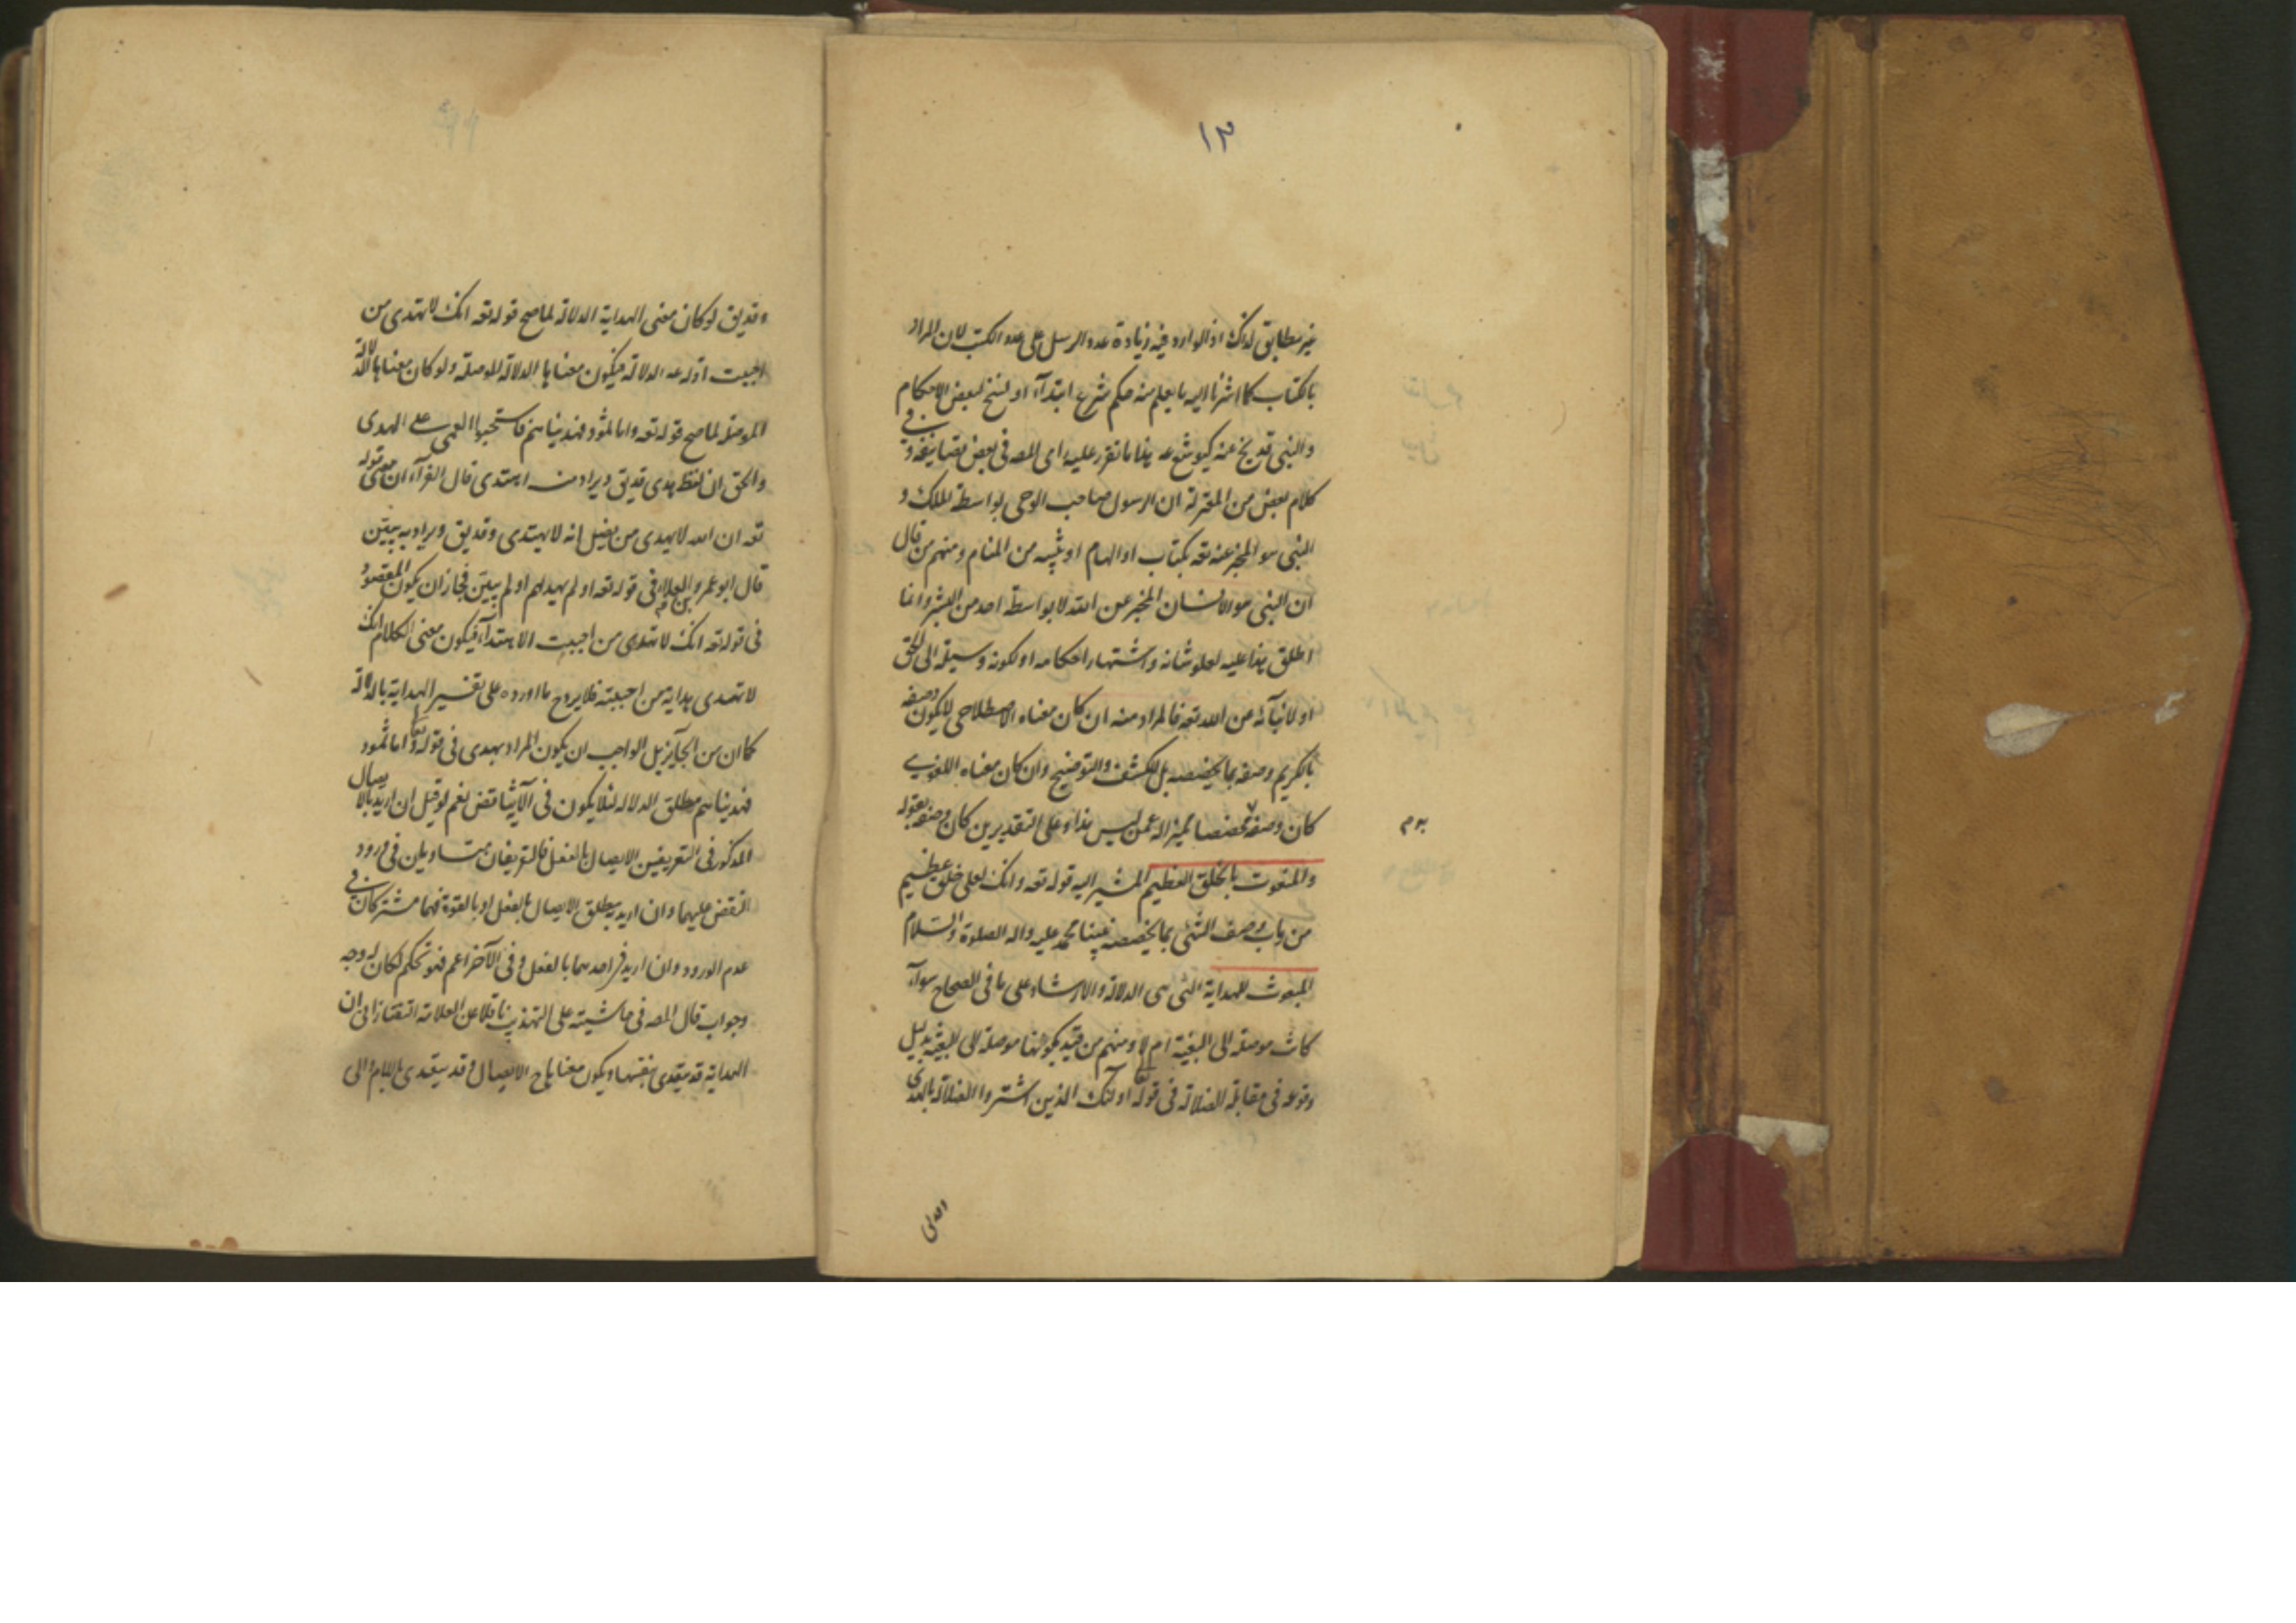 ١٣
غير مطابق لذلك اذ الوارد فيه زيادة عدد الرسل على عدد الكتب لان المراد
بالكتاب كما اشرنا اليه ما يعلم منه حكم شرع ابتداء او نسخ لبعض الاحكام
والنبى قد يخ عنه كيوشع عه هذا ما تقرر عليه راى المصه فى بعض تصانيفه و فى
كلام بعض من المعتزلة ان الرسول صاحب الوحى بواسطة الملك و
النبى هو المخبر عنه تعه بكتاب او الهام او تنبيه من المنام ومنهم من قال
ان النبى هو الانسان المخبر عن الله لا بواسطة احد من البشر وانما
اطلق هذا عليه لعلو شانه واشتهار احكامه او لكونه وسيلة الى الحق
او لانبائه من الله تعه فالمراد منه ان كان معناه الاصطلاحى لا يكون وصفه
بالكريم وصفه بما يخصصه بل للكشف والتوضيح وان كان معناه اللغوى
كان وصفه مخصصا مميزا له عمن ليس هذا وعلى التقديرين كان وصفه بقوله
والمنعوت بالخلق العظيم المشير اليه قوله تعه وانك لعلى خلق عظيم
من باب وصف الشئ بما يخصصه نبينا محمد عليه واله الصلوة والسلام
المبعوث للهداية التى هى الدلالة والارشاد على ما فى الصحاح سواء
كانت موصلة الى البغية ام لا ومنهم من قيد بكونها موصلة الى البغية بدليل
وقوعه فى مقابلة الضلالة فى قوله اولئك الذين اشتروا الضلالة بالهدى
وقد يق لو كان معنى الهداية الدلالة لما صح قوله تعه انك لا تهدى من
احببت اذ له عه الدلالة فيكون معناها الدلالة الموصلة ولو كان معناها الدلالة
الموصلة لما صح قوله تعه واما ثمود فهديناهم فاستحبوا العمى على الهدى
والحق ان لفظ هدى قد يق ويراد منه اهتدى قال الفراء ان معنى قوله
تعه ان الله لا يهدى من يضل انه لا يهتدى وقد يق ويراد به يبيّن
قال ابو عمرو بن العلاء فى قوله تعه اولم يهد لهم اولم يبيّن فجاز ان يكون المقصود
فى قوله تعه انك لا تهدى من احببت الاهتداء فيكون معنى الكلام انك
لا تهدى هداية من احببته فلا يروح ما اورده على تفسير الهداية بالدلالة
كما ان من الجايز بل الواجب ان يكون المراد بهدى فى قوله تعا واما ثمود
فهديناهم مطلق الدلالة لئلا يكون فى الآية تناقض نعم لو قيل ان اريد بالايصال
المذكور فى التعريفين الايصال بالفعل فالتعريفان متساويان فى ورود
النقض عليهما وان اريد مطلق الايصال بالفعل او بالقوة فهما مشتركان فى
عدم الورود وان اريد فى احدهما بالفعل وفى الآخر اعم فهو تحكم لكان له وجه
وجواب قال المصه فى حاشيته على التهذيب ناقلا عن العلامة التفتازانى ان
الهداية قد يتعدى بنفسها ويكون معناها ح الايصال وقد يتعدى باللام والى